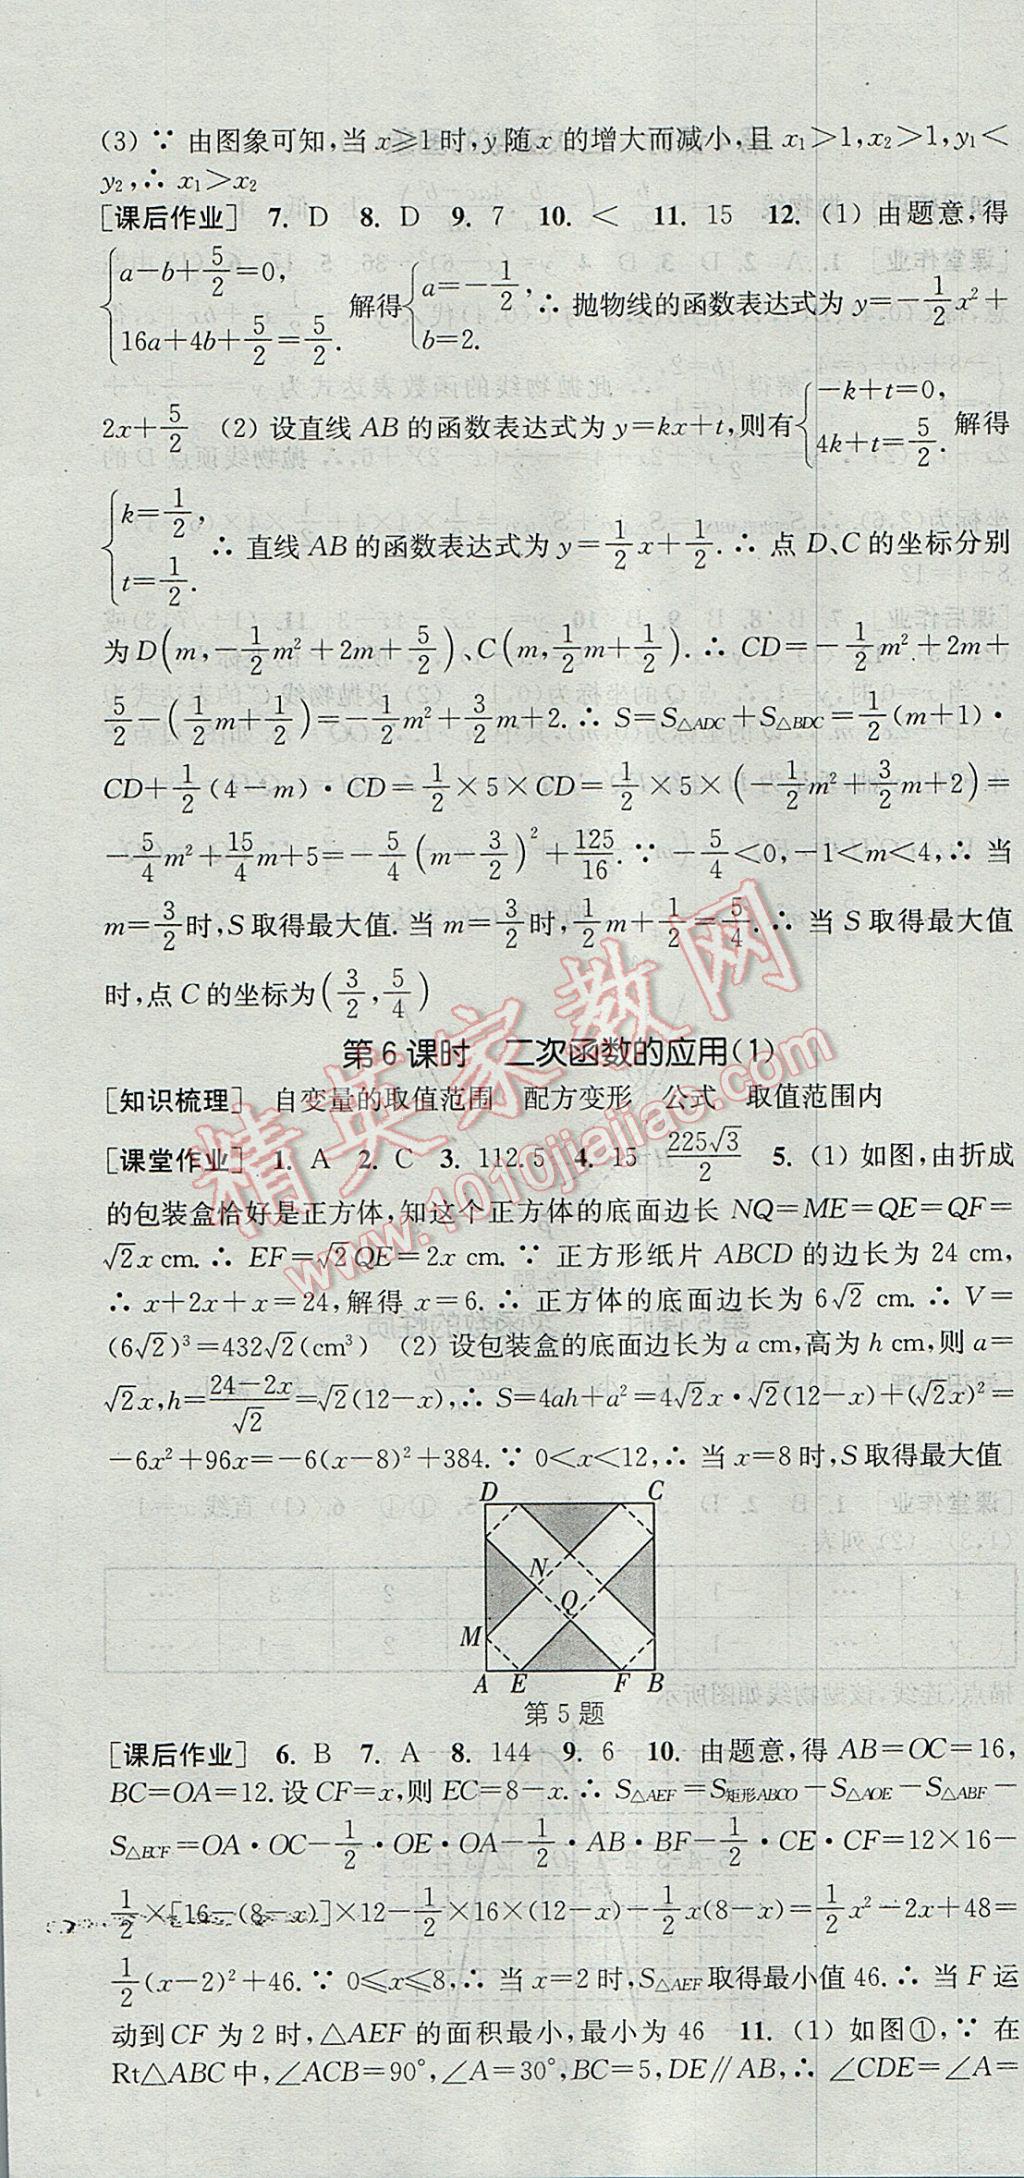 (3) ∵ 由图象可知,当 x≥1 时,y 随 x 的增大而减小,且 x₁>1,x₂>1,y₁<
y₂,∴ x₁>x₂
[课后作业] 7. D 8. D 9. 7 10. < 11. 15 12. (1) 由题意,得
{a-b+5/2=0, 16a+4b+5/2=5/2. 解得{a=-1/2, b=2. ∴ 抛物线的函数表达式为 y=-1/2x²+
2x+5/2 (2) 设直线 AB 的函数表达式为 y=kx+t,则有{-k+t=0, 4k+t=5/2. 解得
{k=1/2, t=1/2. ∴ 直线 AB 的函数表达式为 y=1/2x+1/2. ∴ 点 D、C 的坐标分别
为 D(m,-1/2m²+2m+5/2)、C(m,1/2m+1/2). ∴ CD=-1/2m²+2m+
5/2-(1/2m+1/2)=-1/2m²+3/2m+2. ∴ S=S△ADC+S△BDC=1/2(m+1)·
CD+1/2(4-m)·CD=1/2×5×CD=1/2×5×(-1/2m²+3/2m+2)=
-5/4m²+15/4m+5=-5/4(m-3/2)²+125/16. ∵ -5/4<0,-1<m<4,∴ 当
m=3/2时,S 取得最大值. 当 m=3/2时,1/2m+1/2=5/4. ∴ 当 S 取得最大值
时,点 C 的坐标为(3/2,5/4)
第 6 课时 二次函数的应用(1)
[知识梳理] 自变量的取值范围 配方变形 公式 取值范围内
[课堂作业] 1. A 2. C 3. 112.5 4. 15 225√3/2 5. (1) 如图,由折成
的包装盒恰好是正方体,知这个正方体的底面边长 NQ=ME=QE=QF=
√2x cm. ∴ EF=√2QE=2x cm. ∵ 正方形纸片 ABCD 的边长为 24 cm,
∴ x+2x+x=24,解得 x=6. ∴ 正方体的底面边长为 6√2 cm. ∴ V=
(6√2)³=432√2(cm³) (2) 设包装盒的底面边长为 a cm,高为 h cm,则 a=
√2x,h=24-2x/√2=√2(12-x),∴ S=4ah+a²=4√2x·√2(12-x)+(√2x)²=
-6x²+96x=-6(x-8)²+384. ∵ 0<x<12,∴ 当 x=8 时,S 取得最大值
D C
N
Q
M
A E F B
第 5 题
[课后作业] 6. B 7. A 8. 144 9. 6 10. 由题意,得 AB=OC=16,
BC=OA=12. 设 CF=x,则 EC=8-x. ∴ S△AEF=S矩形ABCO-S△AOE-S△ABF-
S△ECF=OA·OC-1/2·OE·OA-1/2·AB·BF-1/2·CE·CF=12×16-
1/2×[16-(8-x)]×12-1/2×16×(12-x)-1/2x(8-x)=1/2x²-2x+48=
1/2(x-2)²+46. ∵ 0≤x≤8,∴ 当 x=2 时,S△AEF取得最小值 46. ∴ 当 F 运
动到 CF 为 2 时,△AEF 的面积最小,最小为 46 11. (1) 如图①,∵ 在
Rt△ABC 中,∠ACB=90°,∠A=30°,BC=5,DE∥AB,∴ ∠CDE=∠A=
精英家教网
www.1010jiajiao.com